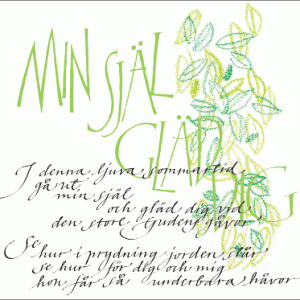 MIN SJÄL
GLÄD DIG
I denna ljuva sommartid
gå ut min själ
och gläd dig vid
den store Gudens gåvor
Se
hur i prydning jorden står
se hur för dig och mig
hon får så underbara håvor